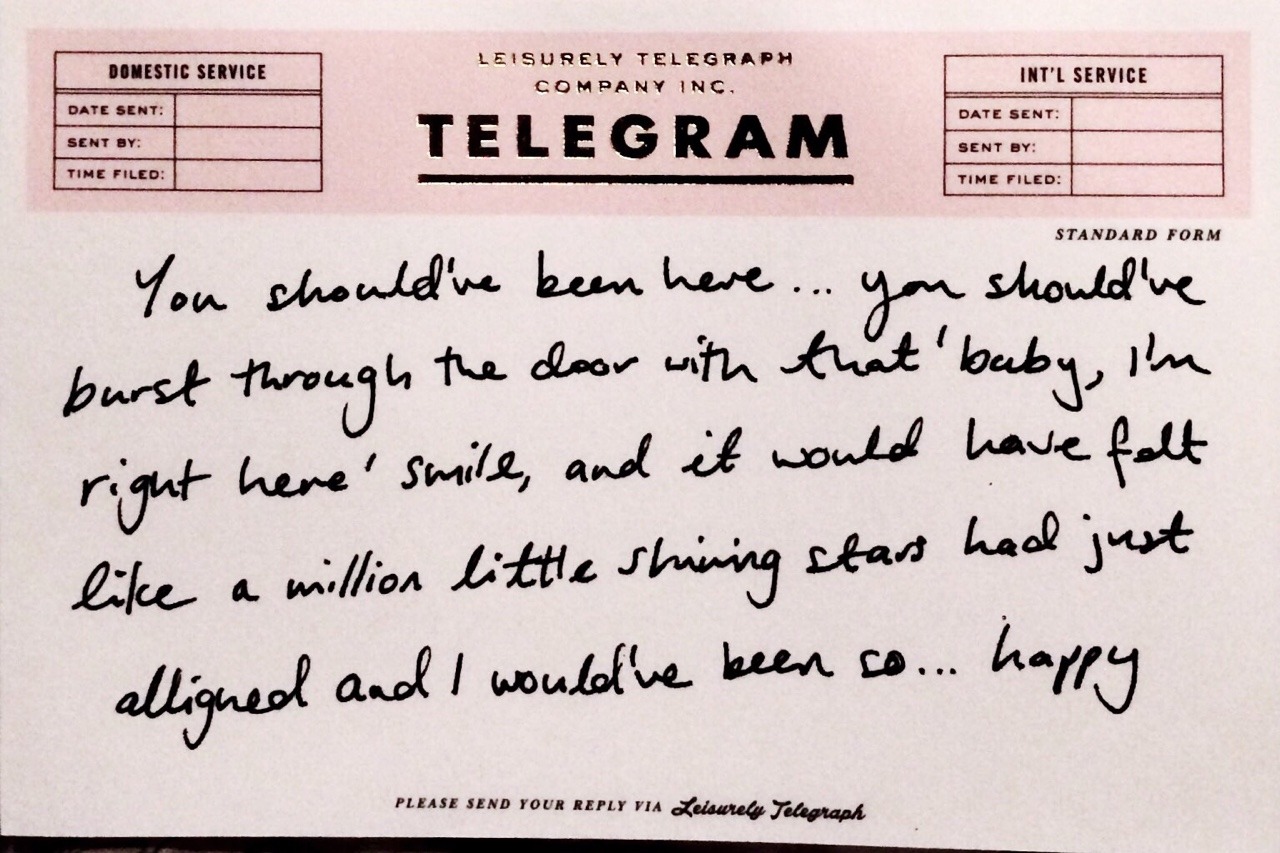 LEISURELY TELEGRAPH
COMPANY INC.
TELEGRAM
DOMESTIC SERVICE
DATE SENT:
SENT BY:
TIME FILED:
INT'L SERVICE
DATE SENT:
SENT BY:
TIME FILED:
STANDARD FORM
You should've been here... you should've
burst through the door with that 'baby, I'm
right here' smile, and it would have felt
like a million little shining stars had just
alligned and I would've been so... happy
PLEASE SEND YOUR REPLY VIA Leisurely Telegraph